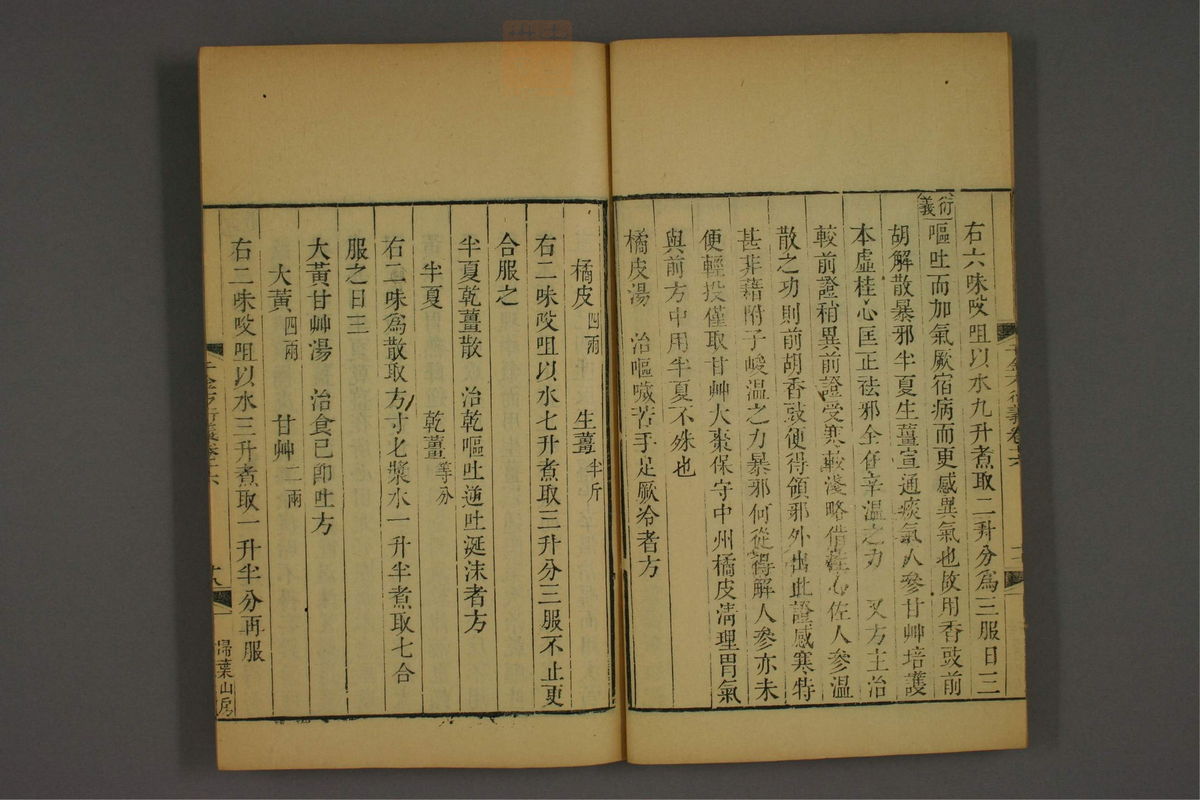 右六味㕮咀以水九升煮取二升分爲三服日三
衍義
嘔吐而加氣厥宿病而更感異氣也故用香豉前
胡解散暴邪半夏生薑宣通痰氣人參甘艸培護
本虛桂心匡正祛邪全任辛溫之力 又方主治
較前證稍異前證受寒較淺略借桂心佐人參溫
散之功則前胡香豉便得領邪外出此證感寒特
甚非藉附子峻溫之力暴邪何從得解人參亦未
便輕投僅取甘艸大棗保守中州橘皮淸理胃氣
與前方中用半夏不殊也
橘皮湯 治嘔噦苦手足厥冷者方
橘皮四兩 生薑半斤
右二味㕮咀以水七升煮取三升分三服不止更
合服之
半夏乾薑散 治乾嘔吐逆吐涎沫者方
半夏 乾薑等分
右二味爲散取方寸匕漿水一升半煮取七合
服之日三
大黃甘艸湯 治食已卽吐方
大黃四兩 甘艸二兩
右二味㕮咀以水三升煮取一升半分再服
十八
掃葉山房